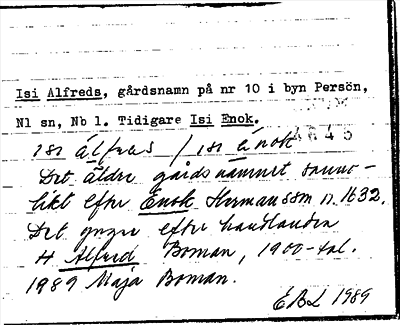 Isi Alfreds, gårdsnamn på nr 10 i byn Persön,
Nl sn, Nb l. Tidigare Isi Enok.
4645
isi álfreds / isi ênok
Det äldre gårdsnamnet sanno-
likt efter Enok Hermansson n. 1632.
Det yngre efter handlanden
H Alfred Boman, 1900-tal.
1989 Maja Boman.
EBL 1989